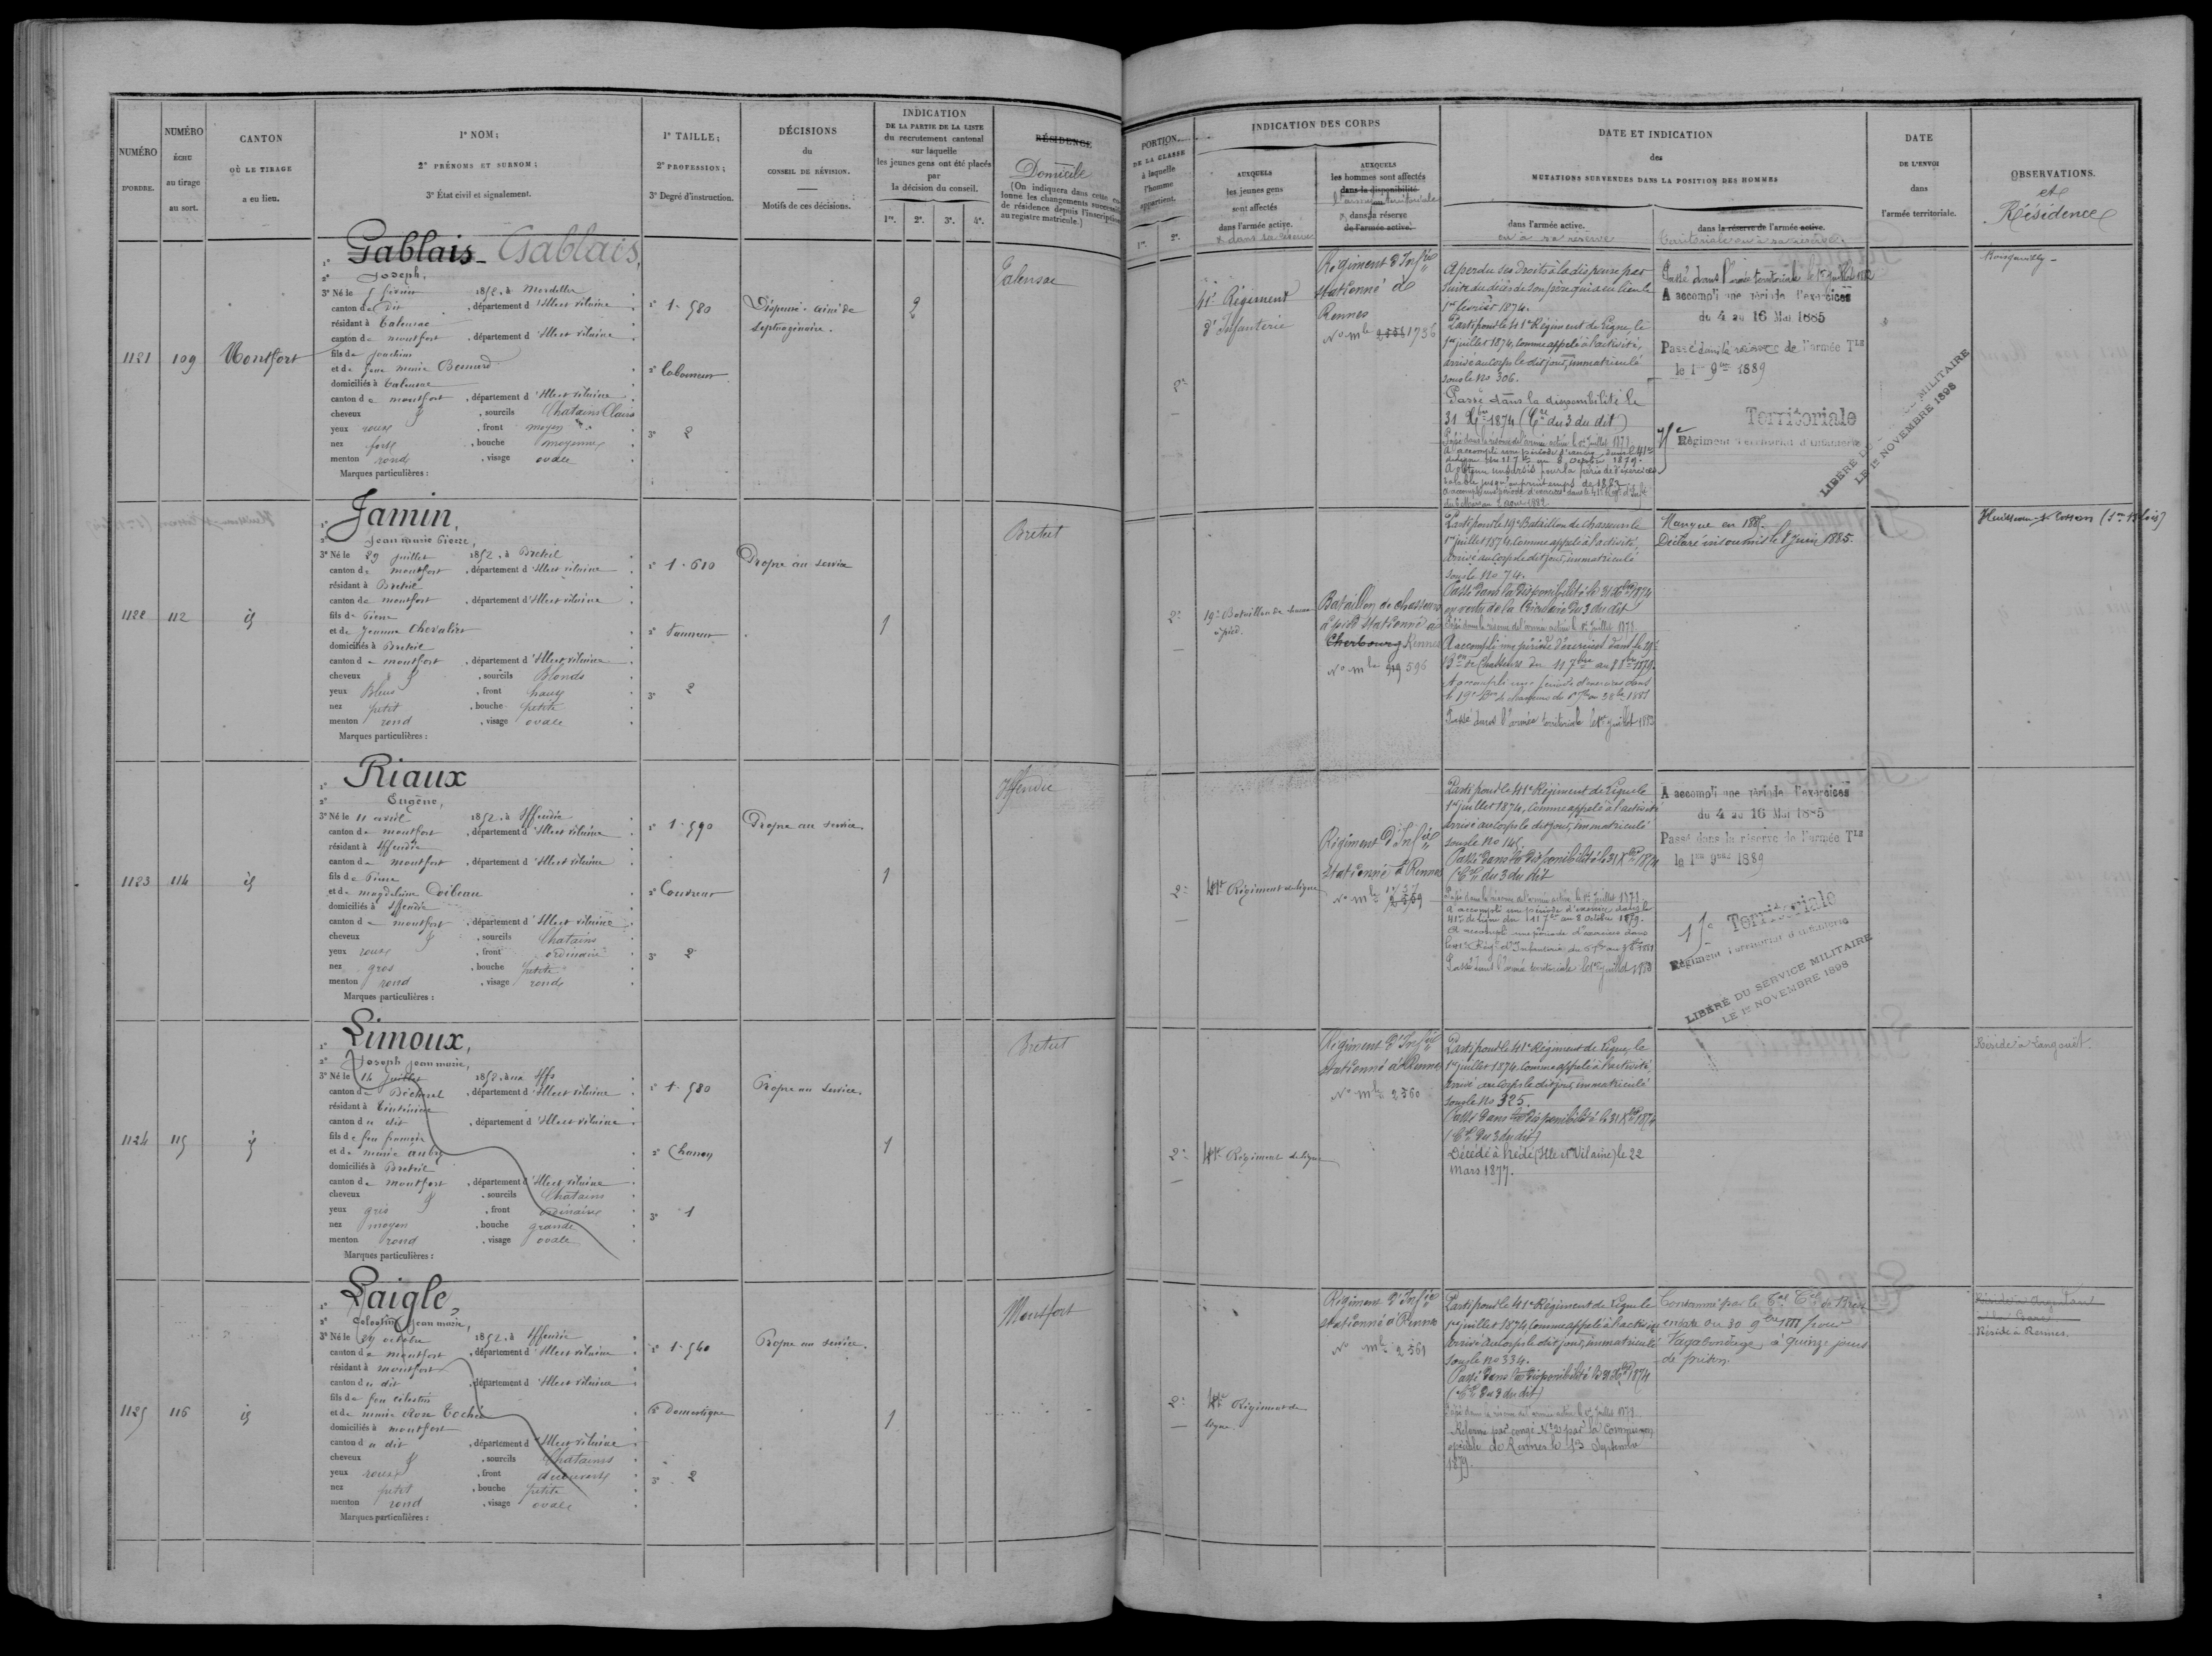 NUMÉRO
D'ORDRE.
NUMÉRO
ÉCHU
au tirage
au sort.
CANTON
OÙ LE TIRAGE
a eu lieu.
1º NOM;
2º PRÉNOMS ET SURNOM;
3º État civil et signalement.
1º TAILLE;
2º PROFESSION;
3º Degré d'instruction.
DÉCISIONS
du
CONSEIL DE RÉVISION.
Motifs de ces décisions.
INDICATION
DE LA PARTIE DE LA LISTE
du recrutement cantonal
sur laquelle
les jeunes gens ont été placés
par
la décision du conseil.
1re. 2e. 3e. 4e.
RÉSIDENCE
Domicile
(On indiquera dans cette
lonne les changements
de résidence depuis l'inscription
au registre matricule.)
PORTION
DE LA CLASSE
à laquelle
l'homme
appartient.
1re. 2e.
INDICATION DES CORPS
AUXQUELS
les jeunes gens
sont affectés
dans l'armée active.
& dans sa réserve
AUXQUELS
les hommes sont affectés
dans la disponibilité
l'armée territoriale
dans la réserve
de l'armée active.
DATE ET INDICATION
des
MUTATIONS SURVENUES DANS LA POSITION DES HOMMES
dans l'armée active.
ou à sa réserve
dans la réserve de l'armée active.
territoriale ou à sa réserve
DATE
DE L'ENVOI
dans
l'armée territoriale.
OBSERVATIONS.
et
Résidence
1121
109
Montfort
1º Gablais Gablais,
2º Joseph,
3º Né le 5 février 1852, à Mordelles
canton de dit, département d'Ille et vilaine
résidant à Talensac
canton de montfort, département d'Ille et vilaine
fils de Joachim
et de Marie Besnard
domiciliés à Talensac
canton de montfort, département d'Ille et vilaine
cheveux & sourcils Chatains Clairs
yeux roux, front moyen
nez fort, bouche moyenne
menton rond, visage ovale
Marques particulières :
1º 1.580
2º Laboureur
3º 2
Dispensé. ainé de
septuagénaire.
2
Talensac
2e
41e Régiment
d'Infanterie
Régiment d'Infie
stationné à
Rennes
No mle 1736
A perdu ses droits à la dispense par
suite du décès de son père qui a eu lieu le
1er février 1874.
Parti pour le 41e Régiment de Ligne le
1er juillet 1874, comme appelé à l'activité,
arrivé au corps le dit jour, immatriculé
sous le no 306.
Passé dans la disponibilité le
31 Xbre 1874 (Cre du 3 du dit)
Passé dans la réserve de l'armée active le 1er Juillet 1878
Passé dans l'armée territoriale le 1er juillet 1882
A accompli une période d'exercices
du 4 au 16 Mai 1885
Passé dans la réserve de l'armée Tle
le 1er 9bre 1889
Territoriale
Régiment Territorial d'Infanterie
LIBÉRÉ DU SERVICE MILITAIRE
LE 1er NOVEMBRE 1898
1122
112
id
1º Jamin,
2º Jean marie Pierre,
3º Né le 29 juillet 1852, à Breteil
canton de montfort, département d'Ille et vilaine
résidant à Breteil
canton de montfort, département d'Ille et vilaine
fils de Pierre
et de Jeanne Chevalier
domiciliés à Breteil
canton de montfort, département d'Ille et vilaine
cheveux & sourcils Blonds
yeux Bleus, front haut
nez petit, bouche petite
menton rond, visage ovale
Marques particulières :
1º 1.610
2º Tanneur
3º 2
Propre au service
1
Breteil
2e
19e Bataillon de chasseurs
à pied.
Bataillon de chasseurs
à pied stationné à
Cherbourg Rennes
No mle 596
Parti pour le 19e Bataillon de chasseurs le
1er juillet 1874 comme appelé à l'activité,
arrivé au corps le dit jour, immatriculé
sous le No 74.
Passé dans la disponibilité le 31 Xbre 1874
en vertu de la Circulaire du 3 du dit
Passé dans la réserve de l'armée active le 1er Juillet 1878
A accompli une période d'exercices dans le 19e
Bon de Chasseurs du 11 7bre au 8 8bre 1879.
Passé dans l'armée territoriale le 1er juillet 1883
Manque en 1885.
Déclaré insoumis le 8 Juin 1885.
1123
114
id
1º Riaux
2º Eugène,
3º Né le 11 avril 1852, à Iffendic
canton de montfort, département d'Ille et vilaine
résidant à Iffendic
canton de montfort, département d'Ille et vilaine
fils de Pierre
et de magdeleine Doibeau
domiciliés à Iffendic
canton de montfort, département d'Ille et vilaine
cheveux & sourcils Chatains
yeux roux, front ordinaire
nez gros, bouche petite
menton rond, visage rond
Marques particulières :
1º 1.590
2º Couvreur
3º 2
Propre au service.
1
Iffendic
2e
41e Régiment de ligne
Régiment d'Infie
stationné à Rennes
No mle
Parti pour le 41e Régiment de Ligne le
1er juillet 1874, comme appelé à l'activité
arrivé au corps le dit jour, immatriculé
sous le no 145.
Passé dans la disponibilité le 31 Xbre 1874
(Cre du 3 du dit
Passé dans la réserve de l'armée active le 1er Juillet 1878
A accompli une période d'exercices dans le
41e de ligne du 11 7bre au 8 Octobre 1879.
Passé dans l'armée territoriale le 1er juillet 1883
A accompli une période d'exercices
du 4 au 16 Mai 1885
Passé dans la réserve de l'armée Tle
le 1er 9bre 1889
Territoriale
Régiment Territorial d'Infanterie
LIBÉRÉ DU SERVICE MILITAIRE
LE 1er NOVEMBRE 1898
1124
115
id
1º Limoux,
2º Joseph jean marie,
3º Né le 14 juillet 1852, aux Iffs
canton de Bécherel, département d'Ille et vilaine
résidant à Tinténiac
canton du dit, département d'Ille et vilaine
fils de feu françois
et de marie Aubry
domiciliés à Breteil
canton de montfort, département d'Ille et vilaine
cheveux & sourcils Chatains
yeux gris, front ordinaire
nez moyen, bouche grande
menton rond, visage ovale
Marques particulières :
1º 1.580
2º
3º 1
Propre au service.
1
Breteil
2e
41e Régiment de ligne
Régiment d'Infie
stationné à Rennes
No mle 2560
Parti pour le 41e Régiment de Ligne, le
1er juillet 1874, comme appelé à l'activité,
arrivé au corps le dit jour, immatriculé
sous le no 325.
Passé dans la disponibilité le 31 Xbre 1874
(Cre du 3 du dit)
Décédé à hédé (Ille et Vilaine) le 22
mars 1877.
Réside à Langouët
1125
116
id
1º Laigle,
2º Célestin jean marie,
3º Né le 29 octobre 1852, à Iffendic
canton de montfort, département d'Ille et vilaine
résidant à montfort
canton du dit, département d'Ille et vilaine
fils de feu célestin
et de marie Rose
domiciliés à montfort
canton du dit, département d'Ille et vilaine
cheveux & sourcils Chatains
yeux roux, front découvert
nez petit, bouche petite
menton rond, visage ovale
Marques particulières :
1º 1.540
2º Domestique
3º 2
Propre au service.
1
Montfort
2e
41e Régiment de
ligne
Régiment d'Infie
stationné à Rennes
No mle 2561
Parti pour le 41e Régiment de Ligne le
1er juillet 1874, comme appelé à l'activité
arrivé au corps le dit jour, immatriculé
sous le no 334.
Passé dans la disponibilité le 31 Xbre 1874
(Cre du 3 du dit)
Passé dans la réserve de l'armée active le 1er Juillet 1878
Réformé par congé No 2 par la Commission
spéciale de Rennes le 13 Septembre
1879.
Condamné par le Tal Cel de Brest
en date du 30 9bre pour
Vagabondage, à quinze jours
de prison.
Réside à Rennes.